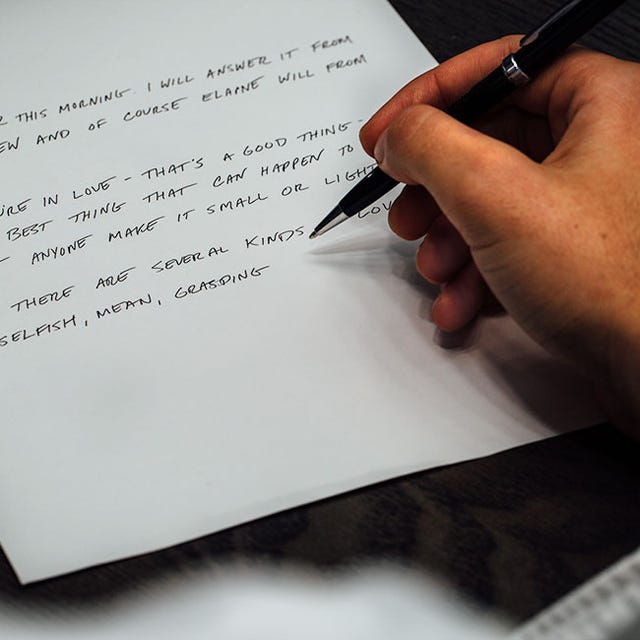 THIS MORNING. I WILL ANSWER IT FROM
EW AND OF COURSE ELAINE WILL FROM
RE IN LOVE - THAT'S A GOOD THING -
BEST THING THAT CAN HAPPEN TO
ANYONE MAKE IT SMALL OR LIGHT
THERE ARE SEVERAL KINDS LOV
SELFISH, MEAN, GRASPING